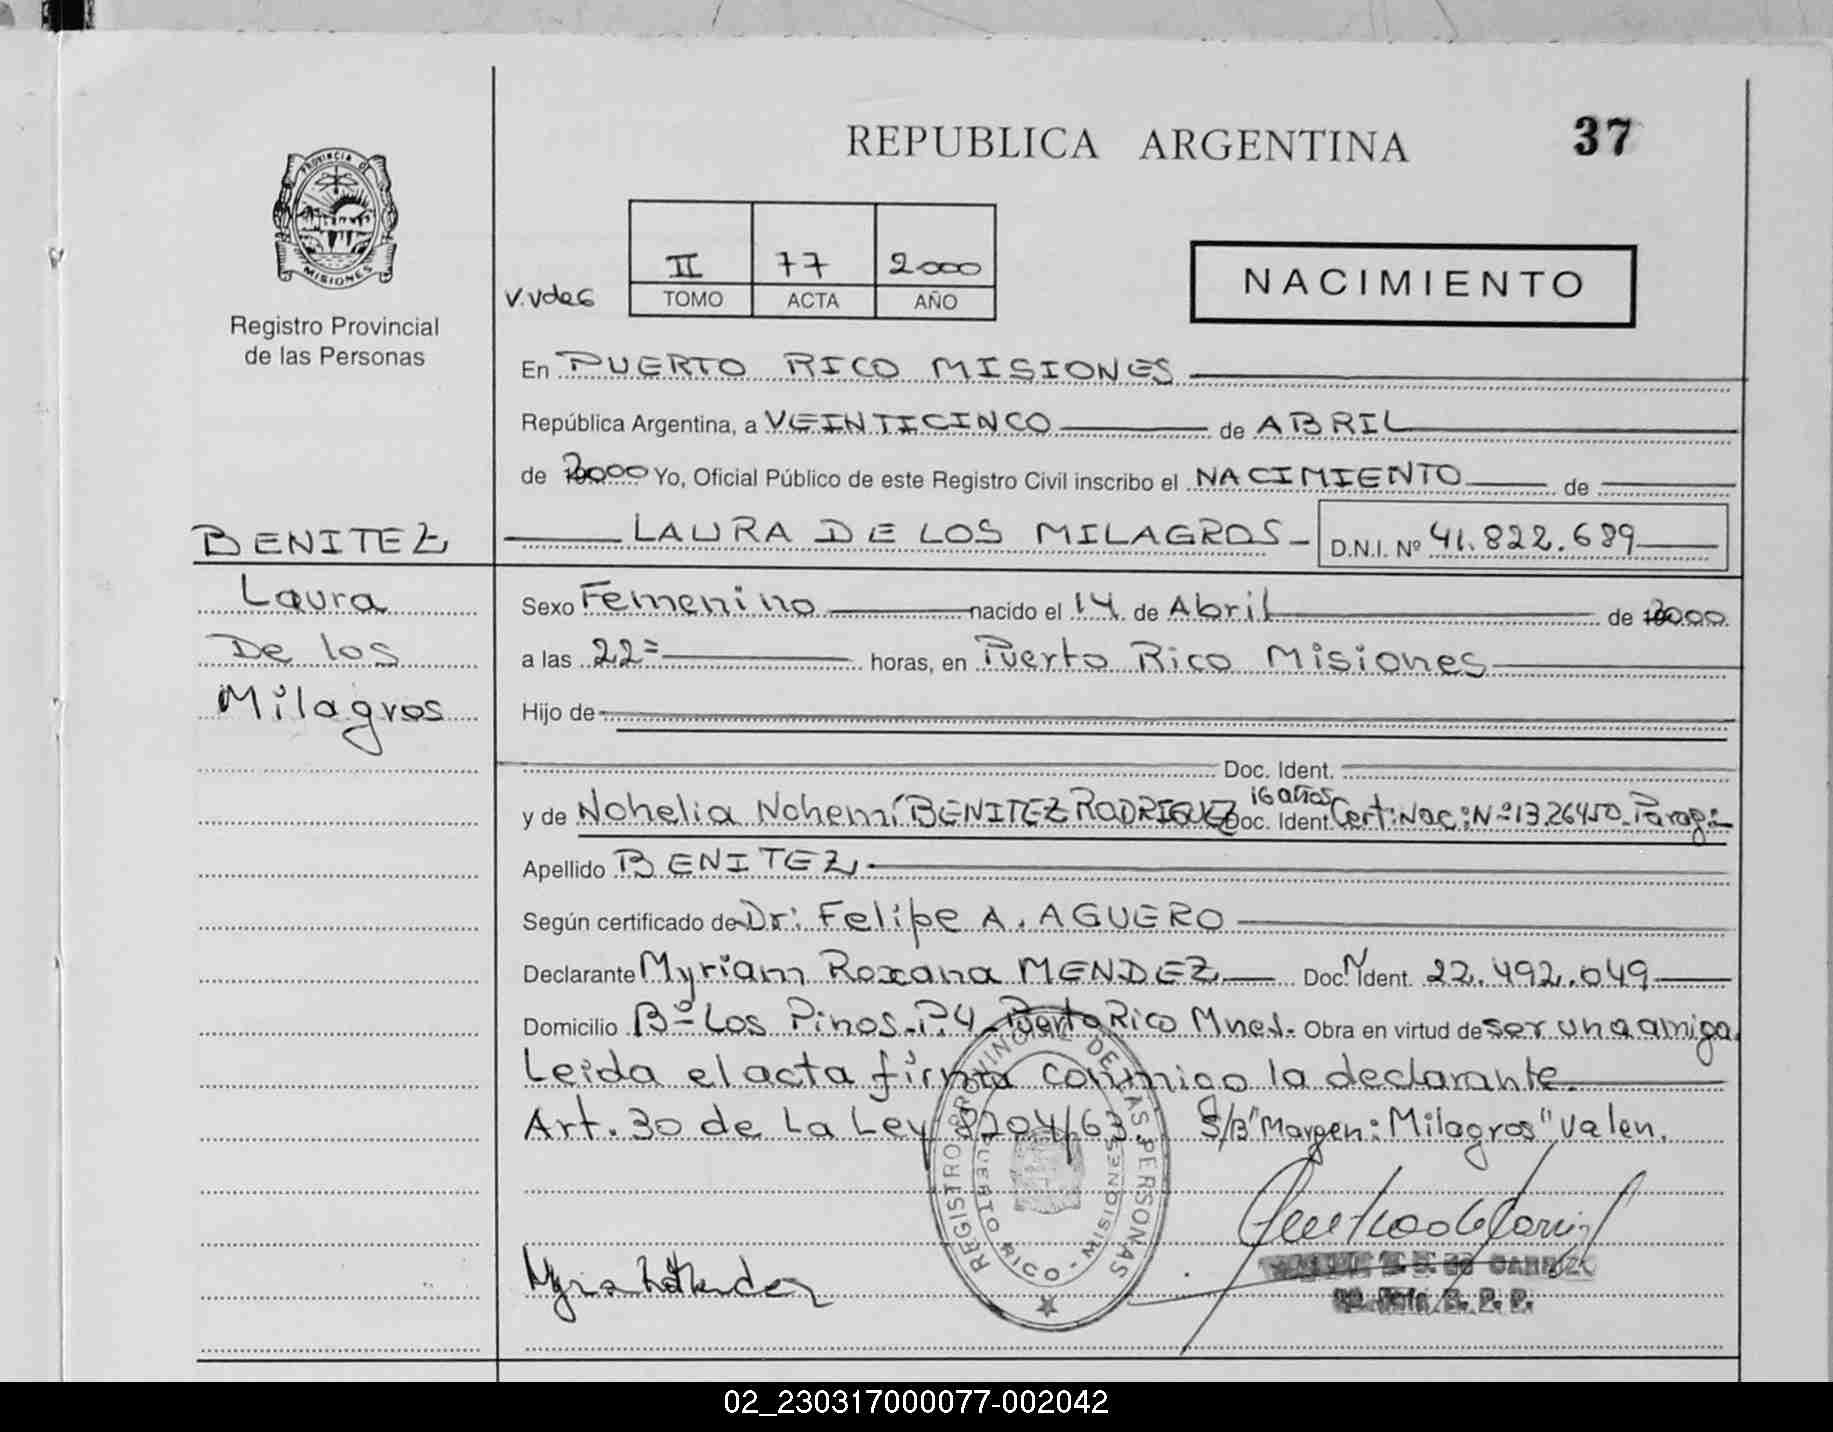 REPUBLICA ARGENTINA
37
PROVINCIA DE MISIONES
Registro Provincial
de las Personas
II 77 2000
TOMO ACTA AÑO
NACIMIENTO
En PUERTO RICO MISIONES
República Argentina, a VEINTICINCO de ABRIL
de 2000 Yo, Oficial Público de este Registro Civil inscribo el NACIMIENTO de
BENITEZ
LAURA DE LOS MILAGROS - D.N.I. Nº 41.822.689
Laura
De los
Milagros
Sexo Femenino nacido el 14 de Abril de 2000
a las 22= horas, en Puerto Rico Misiones
Hijo de
Doc. Ident.
y de Nohelia Nohemí BENITEZ RODRIGUEZ 16 años Doc. Ident. Cert: Nac: Nº 13.26450 Parag:
Apellido BENITEZ
Según certificado de Dr: Felipe A. AGUERO
Declarante Myriam Roxana MENDEZ Doc. Ident. 22.492.049
Domicilio Bº Los Pinos. P.4 Puerto Rico Mnes. Obra en virtud de ser una amiga
Leida el acta firma conmigo la declarante
Art. 30 de La Ley 8204/63. S/B "Margen: Milagros" Valen.
REGISTRO PROVINCIAL DE LAS PERSONAS
PUERTO RICO - MISIONES
02_230317000077-002042